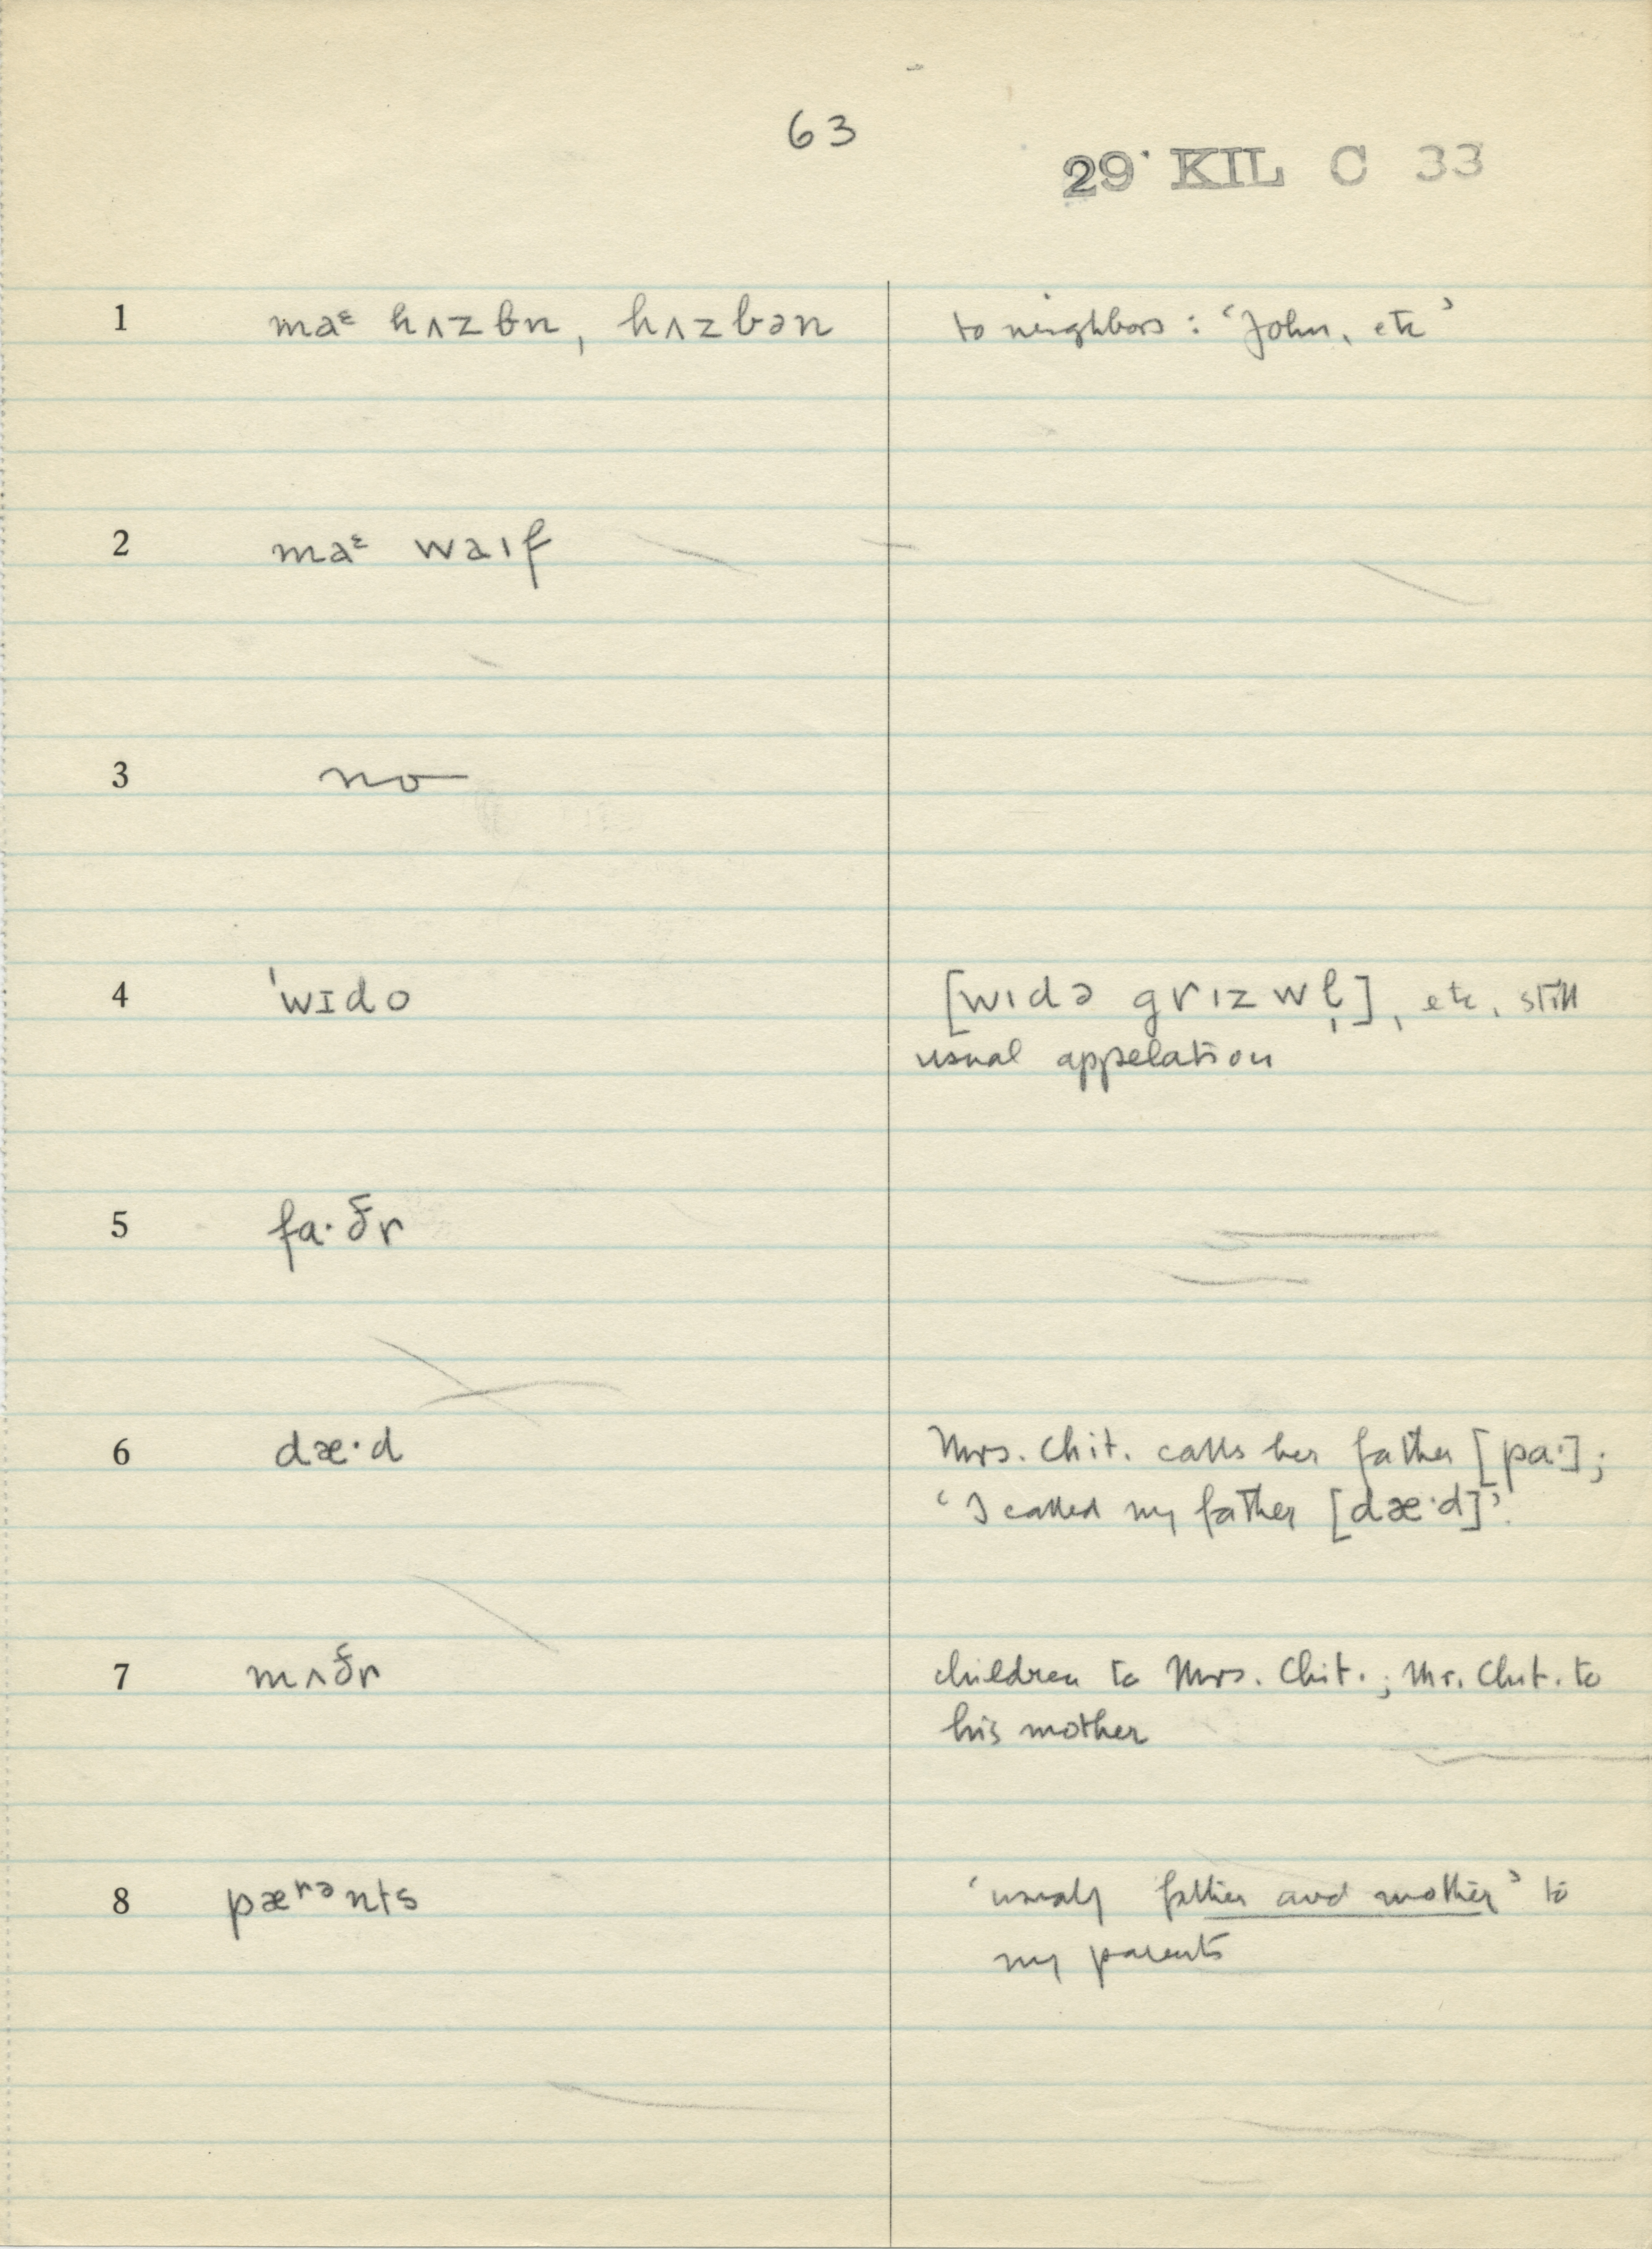 63
29 KIL C 33
1 maᵋ hʌzbn, hʌzbən to neighbors: ‘John, etc’
2 maᵋ waıf
3 no
4 ˈwɪdo [wıdə grızwl̩], etc, still
usual appelation
5 fa·ðr
6 dæ·d Mrs. Chit. calls her father [pa·];
‘I called my father [dæ·d]’.
7 mʌðr children to Mrs. Chit.; Mr. Chit. to
his mother
8 pæʳᵊnts ‘usualy father and mother’ to
my parents